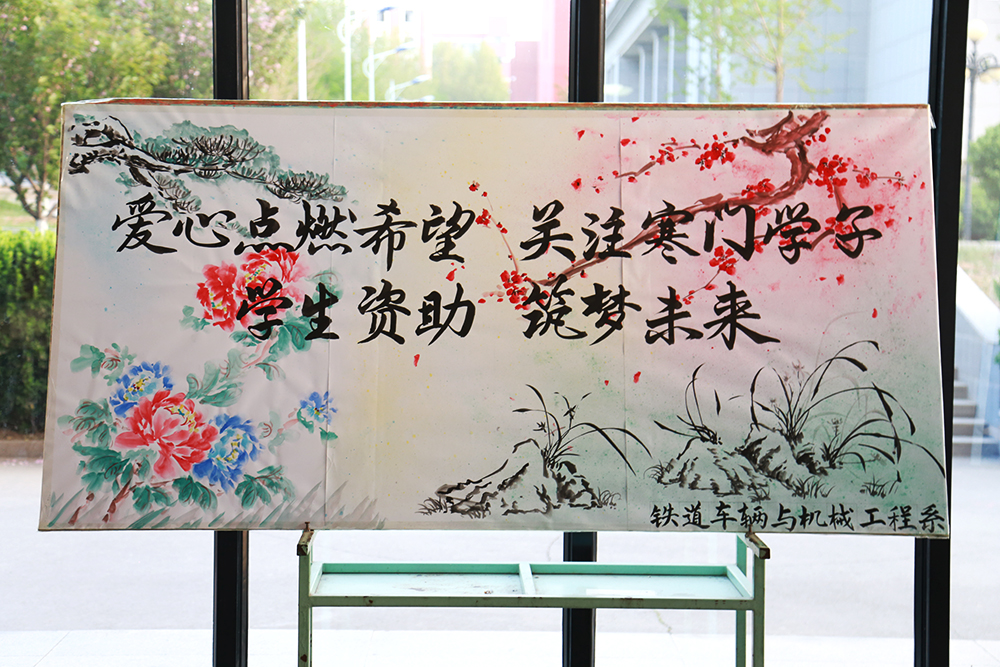 爱心点燃希望 关注寒门学子
学生资助 筑梦未来
铁道车辆与机械工程系